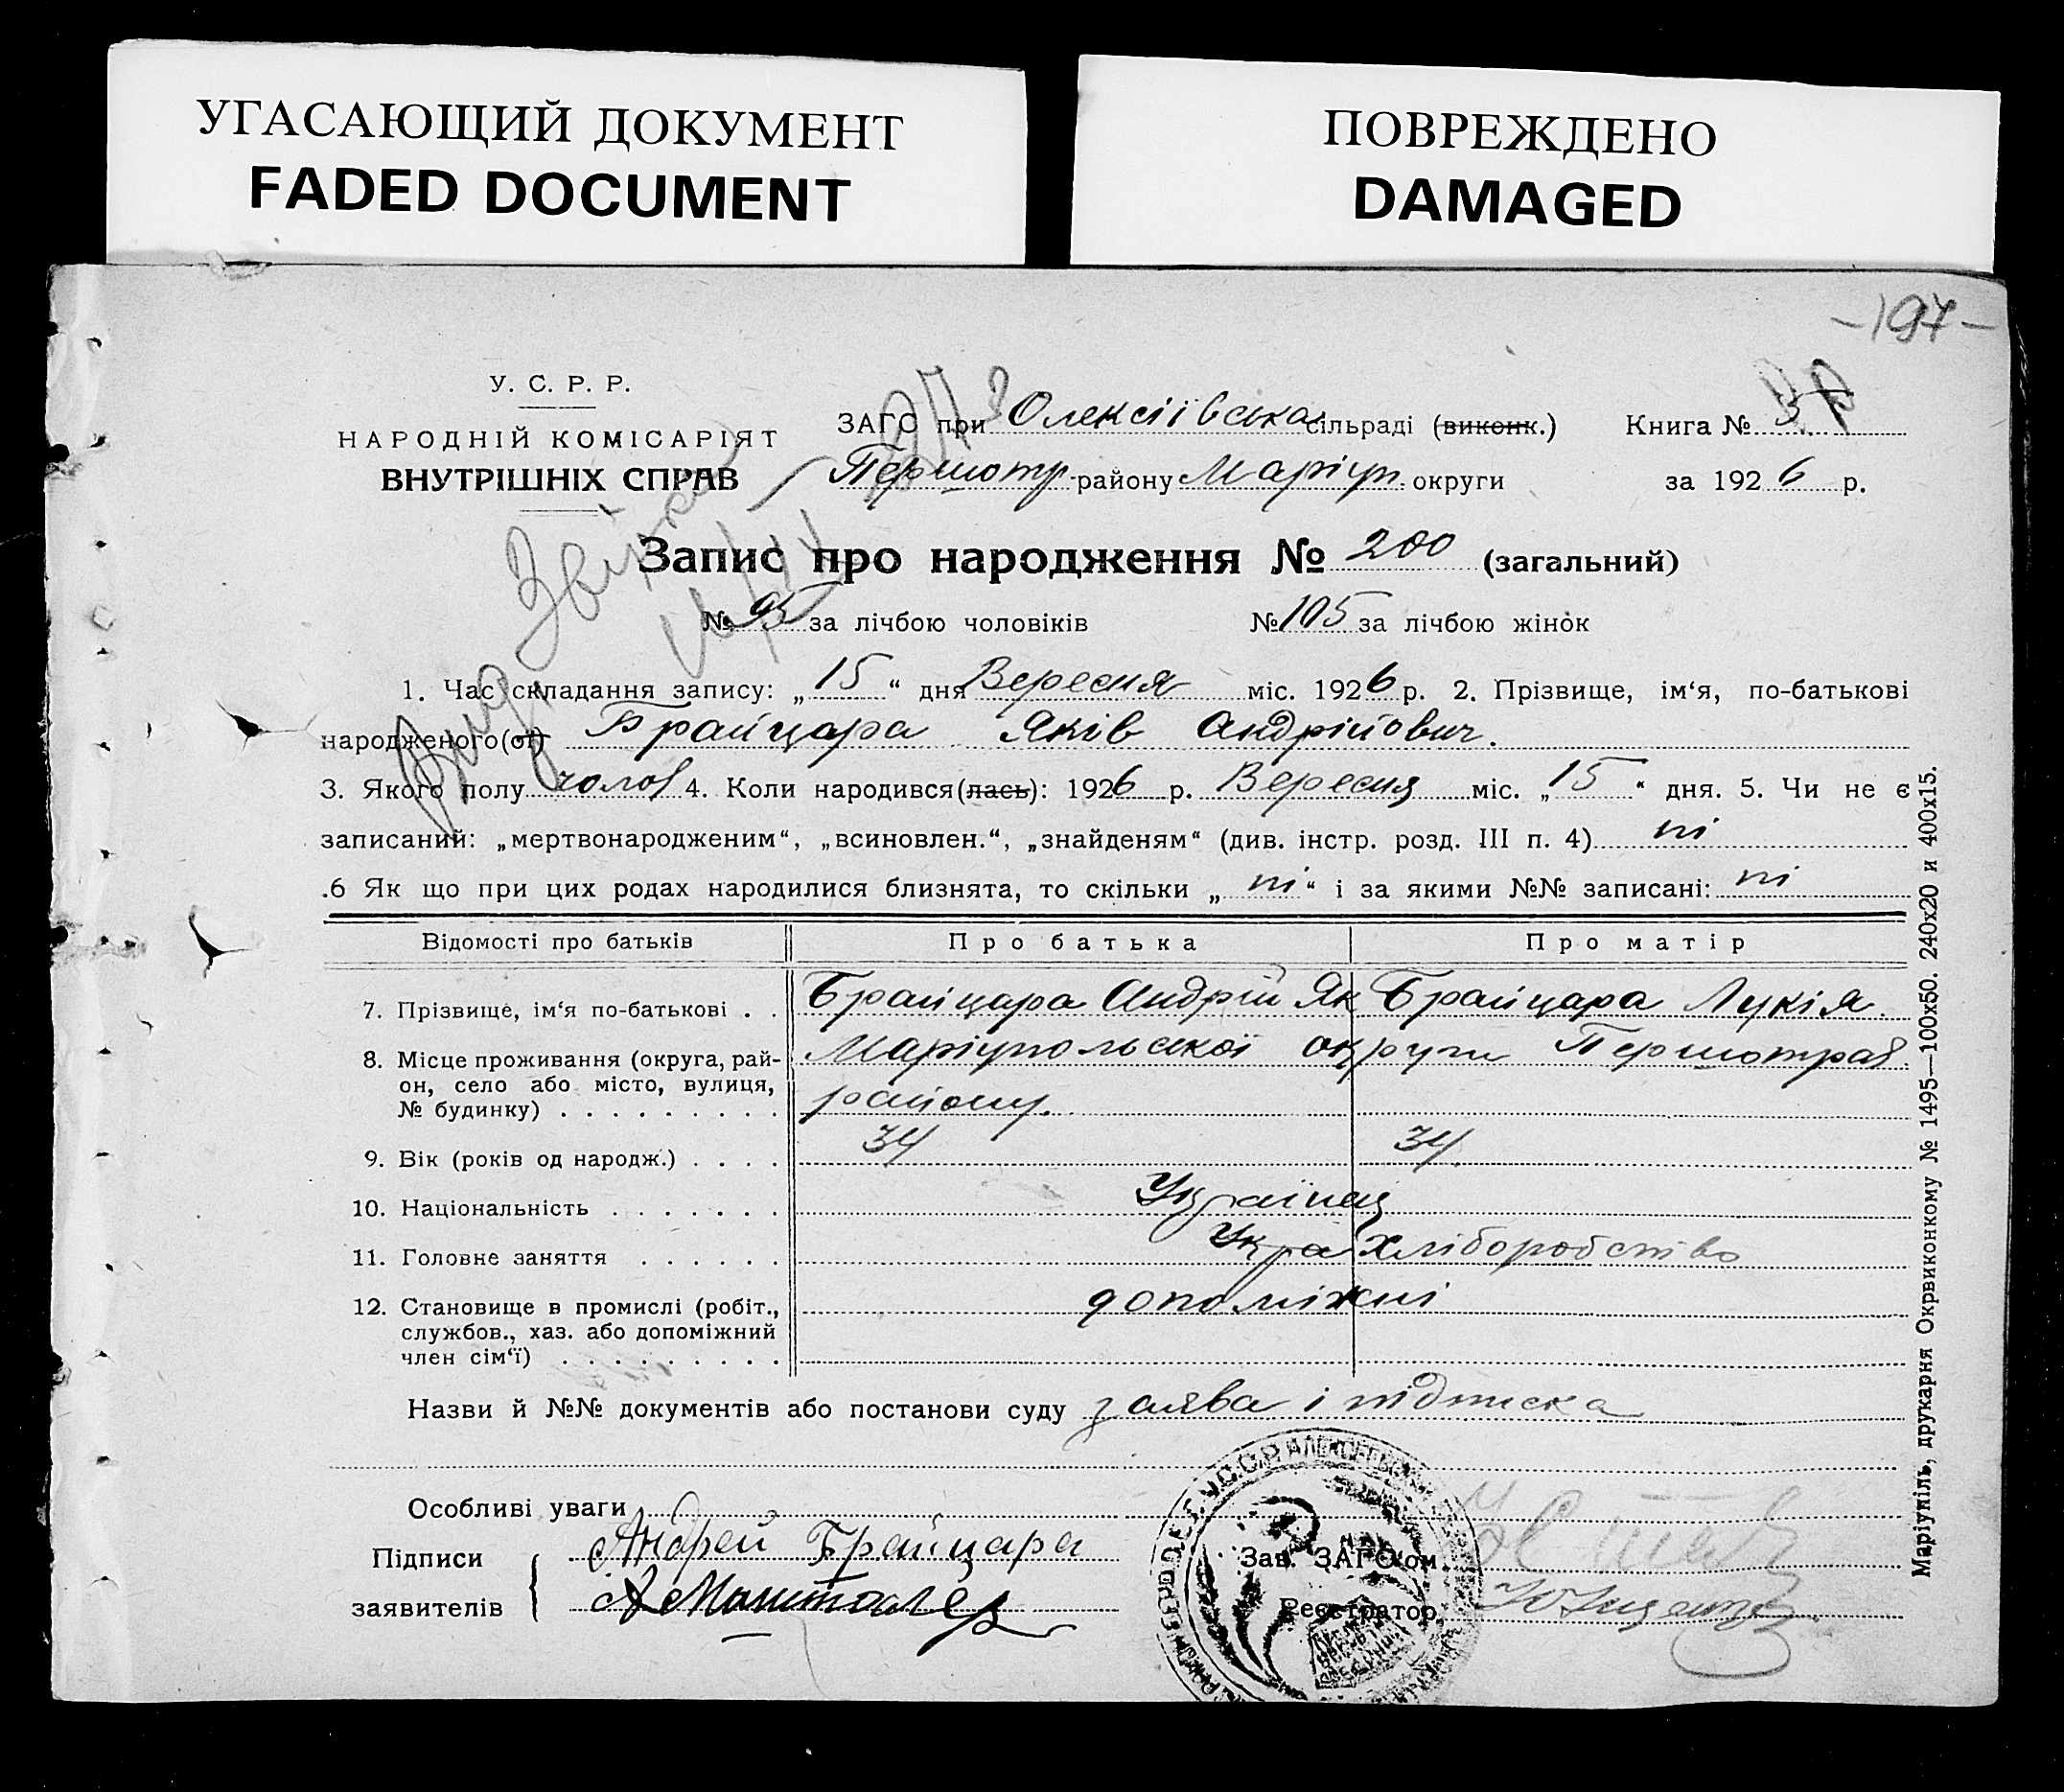 УГАСАЮЩИЙ ДОКУМЕНТ
FADED DOCUMENT
ПОВРЕЖДЕНО
DAMAGED
-197-
У. С. Р. Р.
НАРОДНІЙ КОМІСАРІЯТ
ВНУТРІШНІХ СПРАВ
ЗАГС при Олексіївська сільраді (виконк.) Книга №
Першотр. району Маріуп. округи за 1926 р.
Запис про народження № 200 (загальний)
№ 95 за лічбою чоловіків № 105 за лічбою жінок
1. Час складання запису: „15“ дня Вересня міс. 1926 р. 2. Прізвище, ім‘я, по-батькові
народженого(ої) Брайцара Яків Андрійович.
3. Якого полу чолов 4. Коли народився(лась): 1926 р. Вересня міс. „15“ дня. 5. Чи не є
записаний: „мертвонародженим“, „всиновлен.“, „знайденям“ (див. інстр. розд. III п. 4) ні
.6 Як що при цих родах народилися близнята, то скільки „ні“ і за якими №№ записані: ні
Відомості про батьків Про батька Про матір
7. Прізвище, ім‘я по-батькові . . Брайцара Андрій Як Брайцара Лукія.
8. Місце проживання (округа, рай- Маріупольської округи Першотрав.
он, село або місто, вулиця,
№ будинку) . . . . . . . . . району.
9. Вік (років од народж.) . . . . 34 34
10. Національність . . . . . . . Українці
11. Головне заняття . . . . . . Укра хліборобство
12. Становище в промислі (робіт., допоміжні
службов., хаз. або допоміжний
член сім‘ї) . . . . . . . . .
Назви й №№ документів або постанови суду заява і підписка
Особливі уваги
Підписи Андрей Брайцара Зав. ЗАГС‘ом
заявителів Реєстратор
Маріупіль, друкарня Окрвиконкому № 1495—100х50. 240х20 и 400х15.